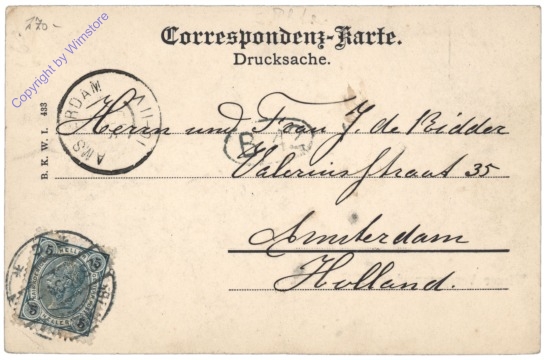 270.-
Copyright by Wimstore
Correspondenz-Karte.
Drucksache.
B. K. W. I. 433
AMSTERDAM
Herrn und Frau J. de Ridder
Valeriusstraat 35
Amsterdam
Holland.
5 5
5 5